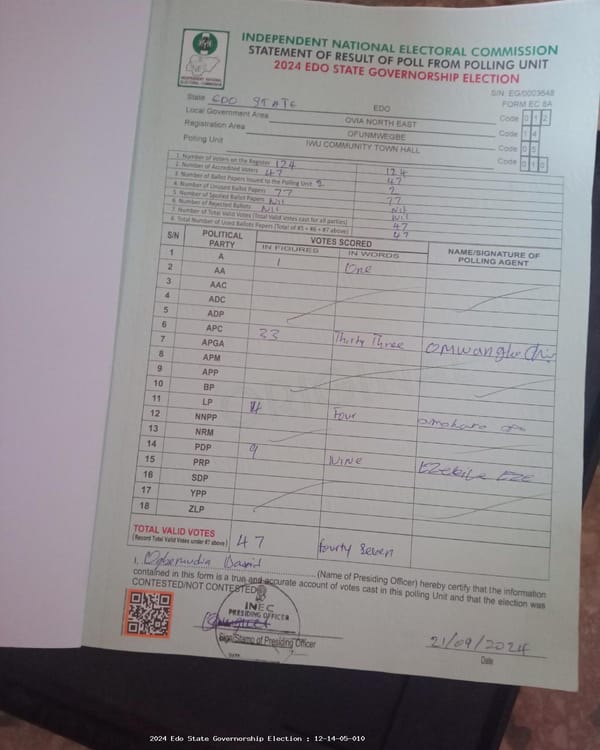 INDEPENDENT NATIONAL ELECTORAL COMMISSION
STATEMENT OF RESULT OF POLL FROM POLLING UNIT
2024 EDO STATE GOVERNORSHIP ELECTION
INDEPENDENT NATIONAL ELECTORAL COMMISSION
S/N EG/0003648
FORM EC 8A
State EDO STATE EDO Code 0 1 2
Local Government Area OVIA NORTH EAST Code 1 4
Registration Area OFUNMWEGBE Code 0 5
Polling Unit IWU COMMUNITY TOWN HALL Code 0 1 0
1. Number of Voters on the Register 124 124
2. Number of Accredited Voters 47 47
3. Number of Ballot Papers Issued to the Polling Unit 2
4. Number of Unused Ballot Papers 77 77
5. Number of Spoiled Ballot Papers Nil Nil
6. Number of Rejected Ballots Nil Nil
7. Number of Total Valid Votes (Total Valid Votes cast for all parties) 47
8. Total Number of Used Ballots Papers (Total of #5 + #6 + #7 above) 47
S/N POLITICAL PARTY VOTES SCORED NAME/SIGNATURE OF POLLING AGENT
IN FIGURES IN WORDS
1 A 1 One
2 AA
3 AAC
4 ADC
5 ADP
6 APC 33 Thirty Three
7 APGA
8 APM
9 APP
10 BP
11 LP 4 Four
12 NNPP
13 NRM
14 PDP 9 NINE
15 PRP
16 SDP
17 YPP
18 ZLP
TOTAL VALID VOTES 47 Fourty Seven
(Record Total Valid Votes under #7 above)
I, David (Name of Presiding Officer) hereby certify that the information
contained in this form is a true and accurate account of votes cast in this polling Unit and that the election was
CONTESTED/NOT CONTESTED
INEC
PRESIDING OFFICER
Sign/Stamp of Presiding Officer
21/09/2024
Date
Date
2024 Edo State Governorship Election : 12-14-05-010